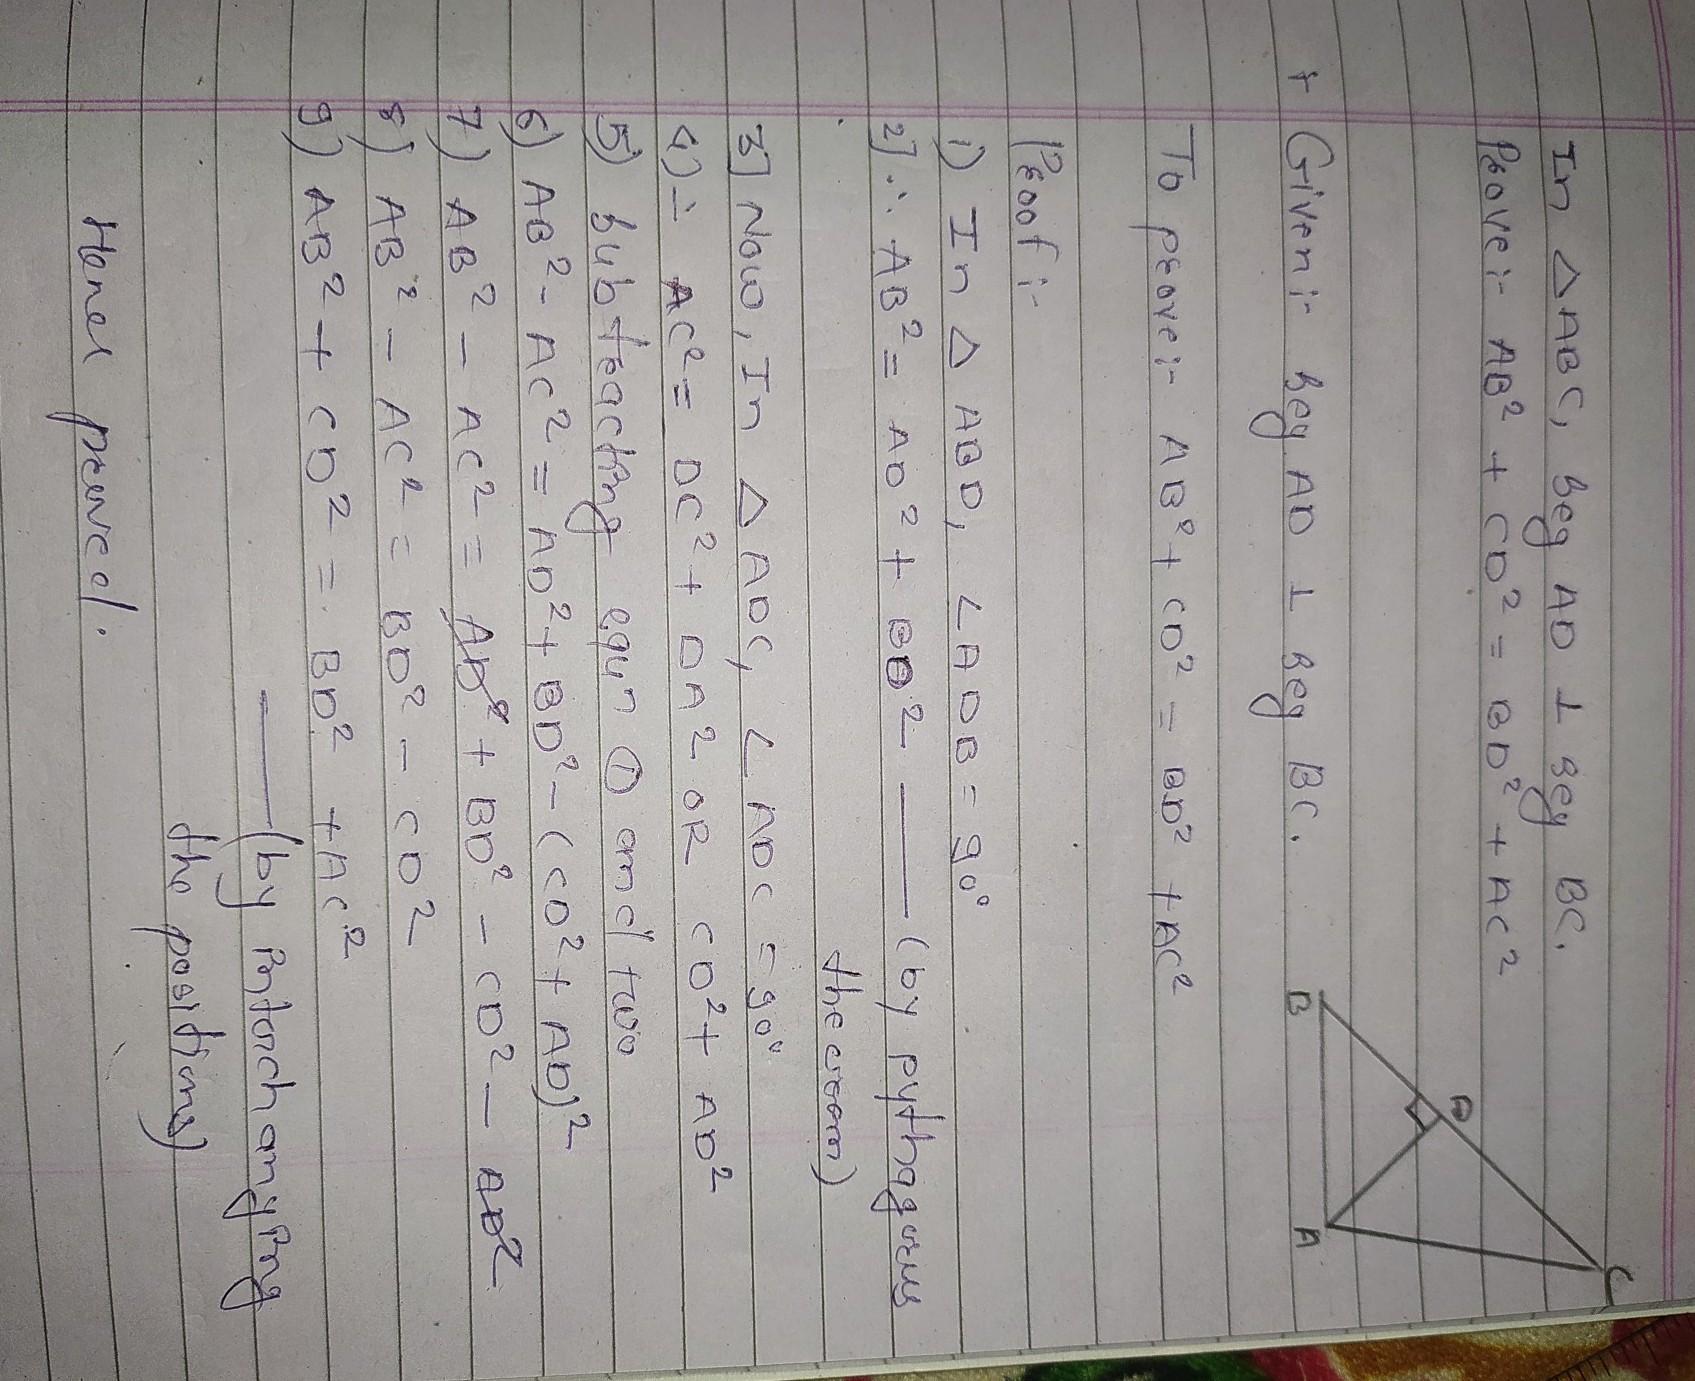 In △ABC, seg AD ⊥ seg BC.
Prove:- AB² + CD² = BD² + AC²
B
D
A
C
+ Given:- seg AD ⊥ seg BC.
To prove:- AB² + CD² = BD² + AC²
Proof:-
1) In △ ABD, ∠ADB = 90°
2] ∴ AB² = AD² + BD² — (by pythagorus
theorom)
3] Now, In △ ADC, ∠ ADC = 90°
4) ∴ AC² = DC² + DA² OR CD² + AD²
5) subtracting equⁿ ① and two
6) AB² - AC² = AD² + BD² - (CD² + AD)²
7) AB² - AC² = AD² + BD² - CD² - AD²
8) AB² - AC² = BD² - CD²
9) AB² + CD² = BD² + AC²
— (by Intarchanying
the positions)
Hence proved.